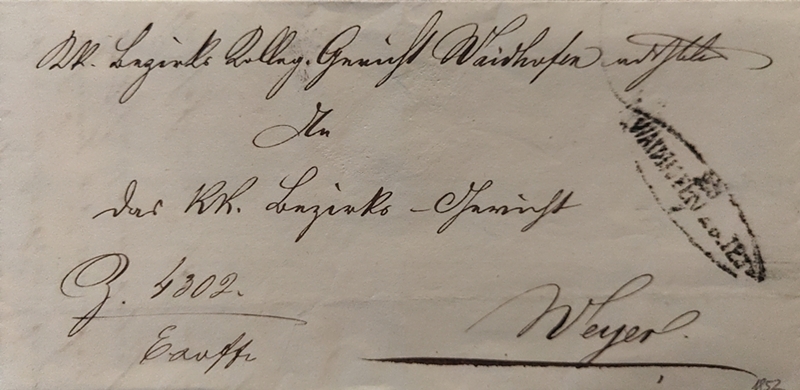 KK. Bezirks Colleg. Gericht Waidhofen
An
das KK. Bezirks-Gericht
Z. 4302.
Weyer.
WAIDHOFEN a.d.
1852